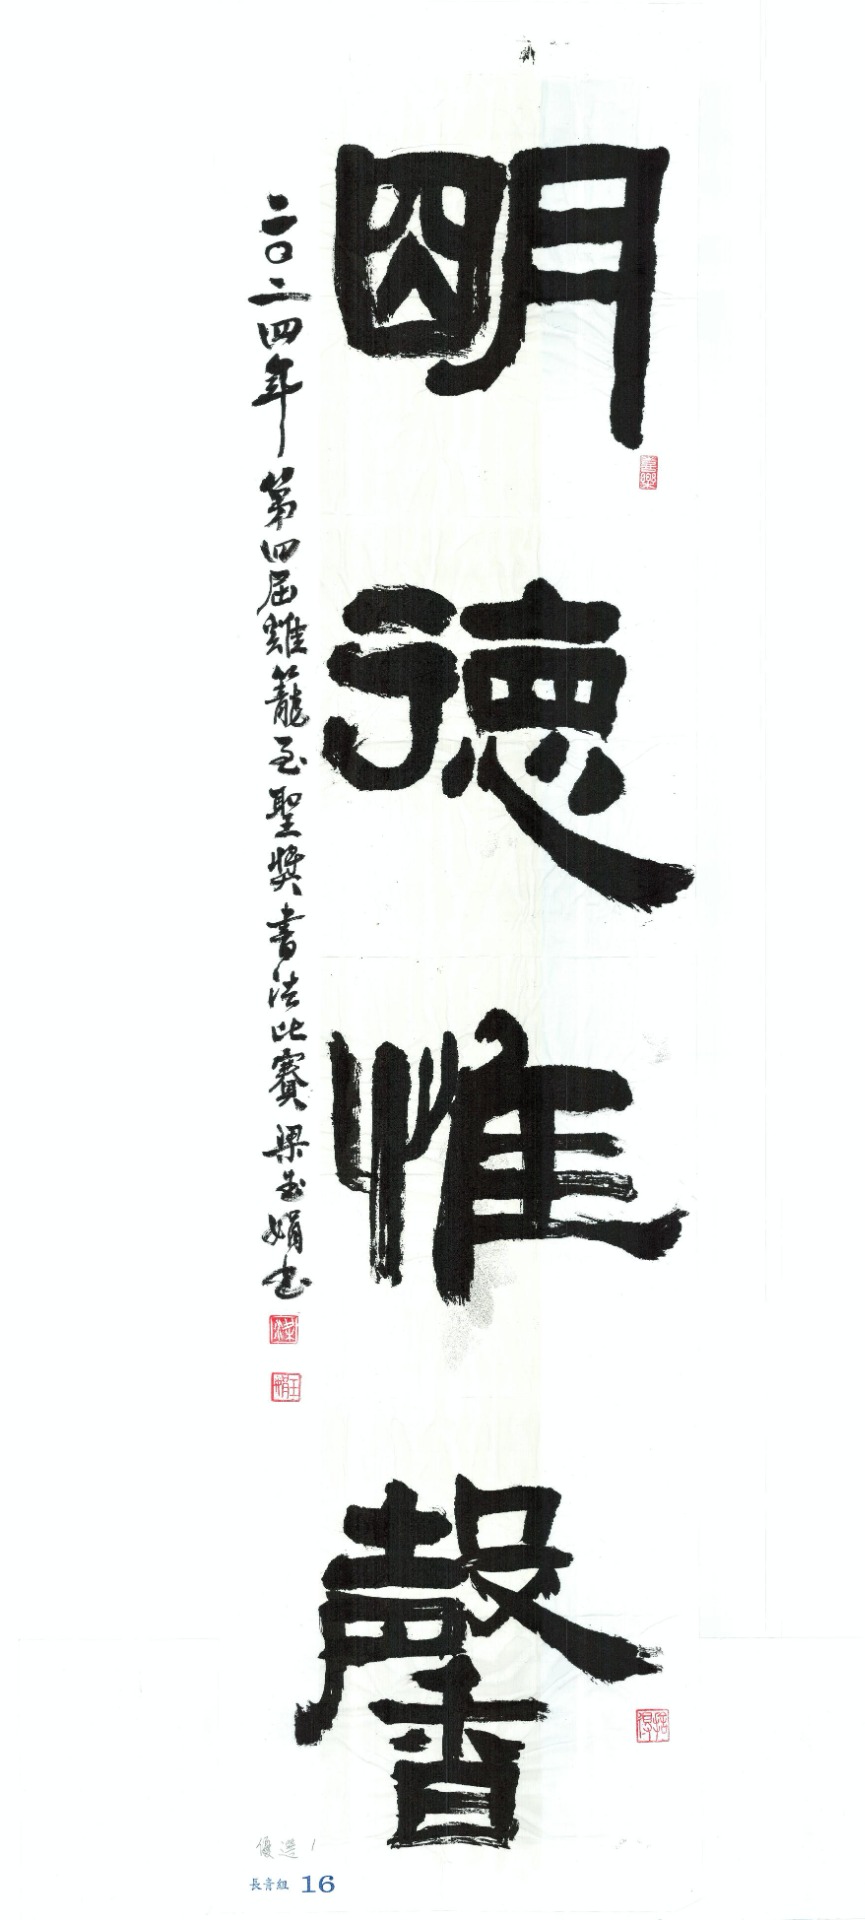 明德惟馨
二〇二四年第四屆雞籠至聖獎書法比賽梁玉娟書
優選1
長青組 16